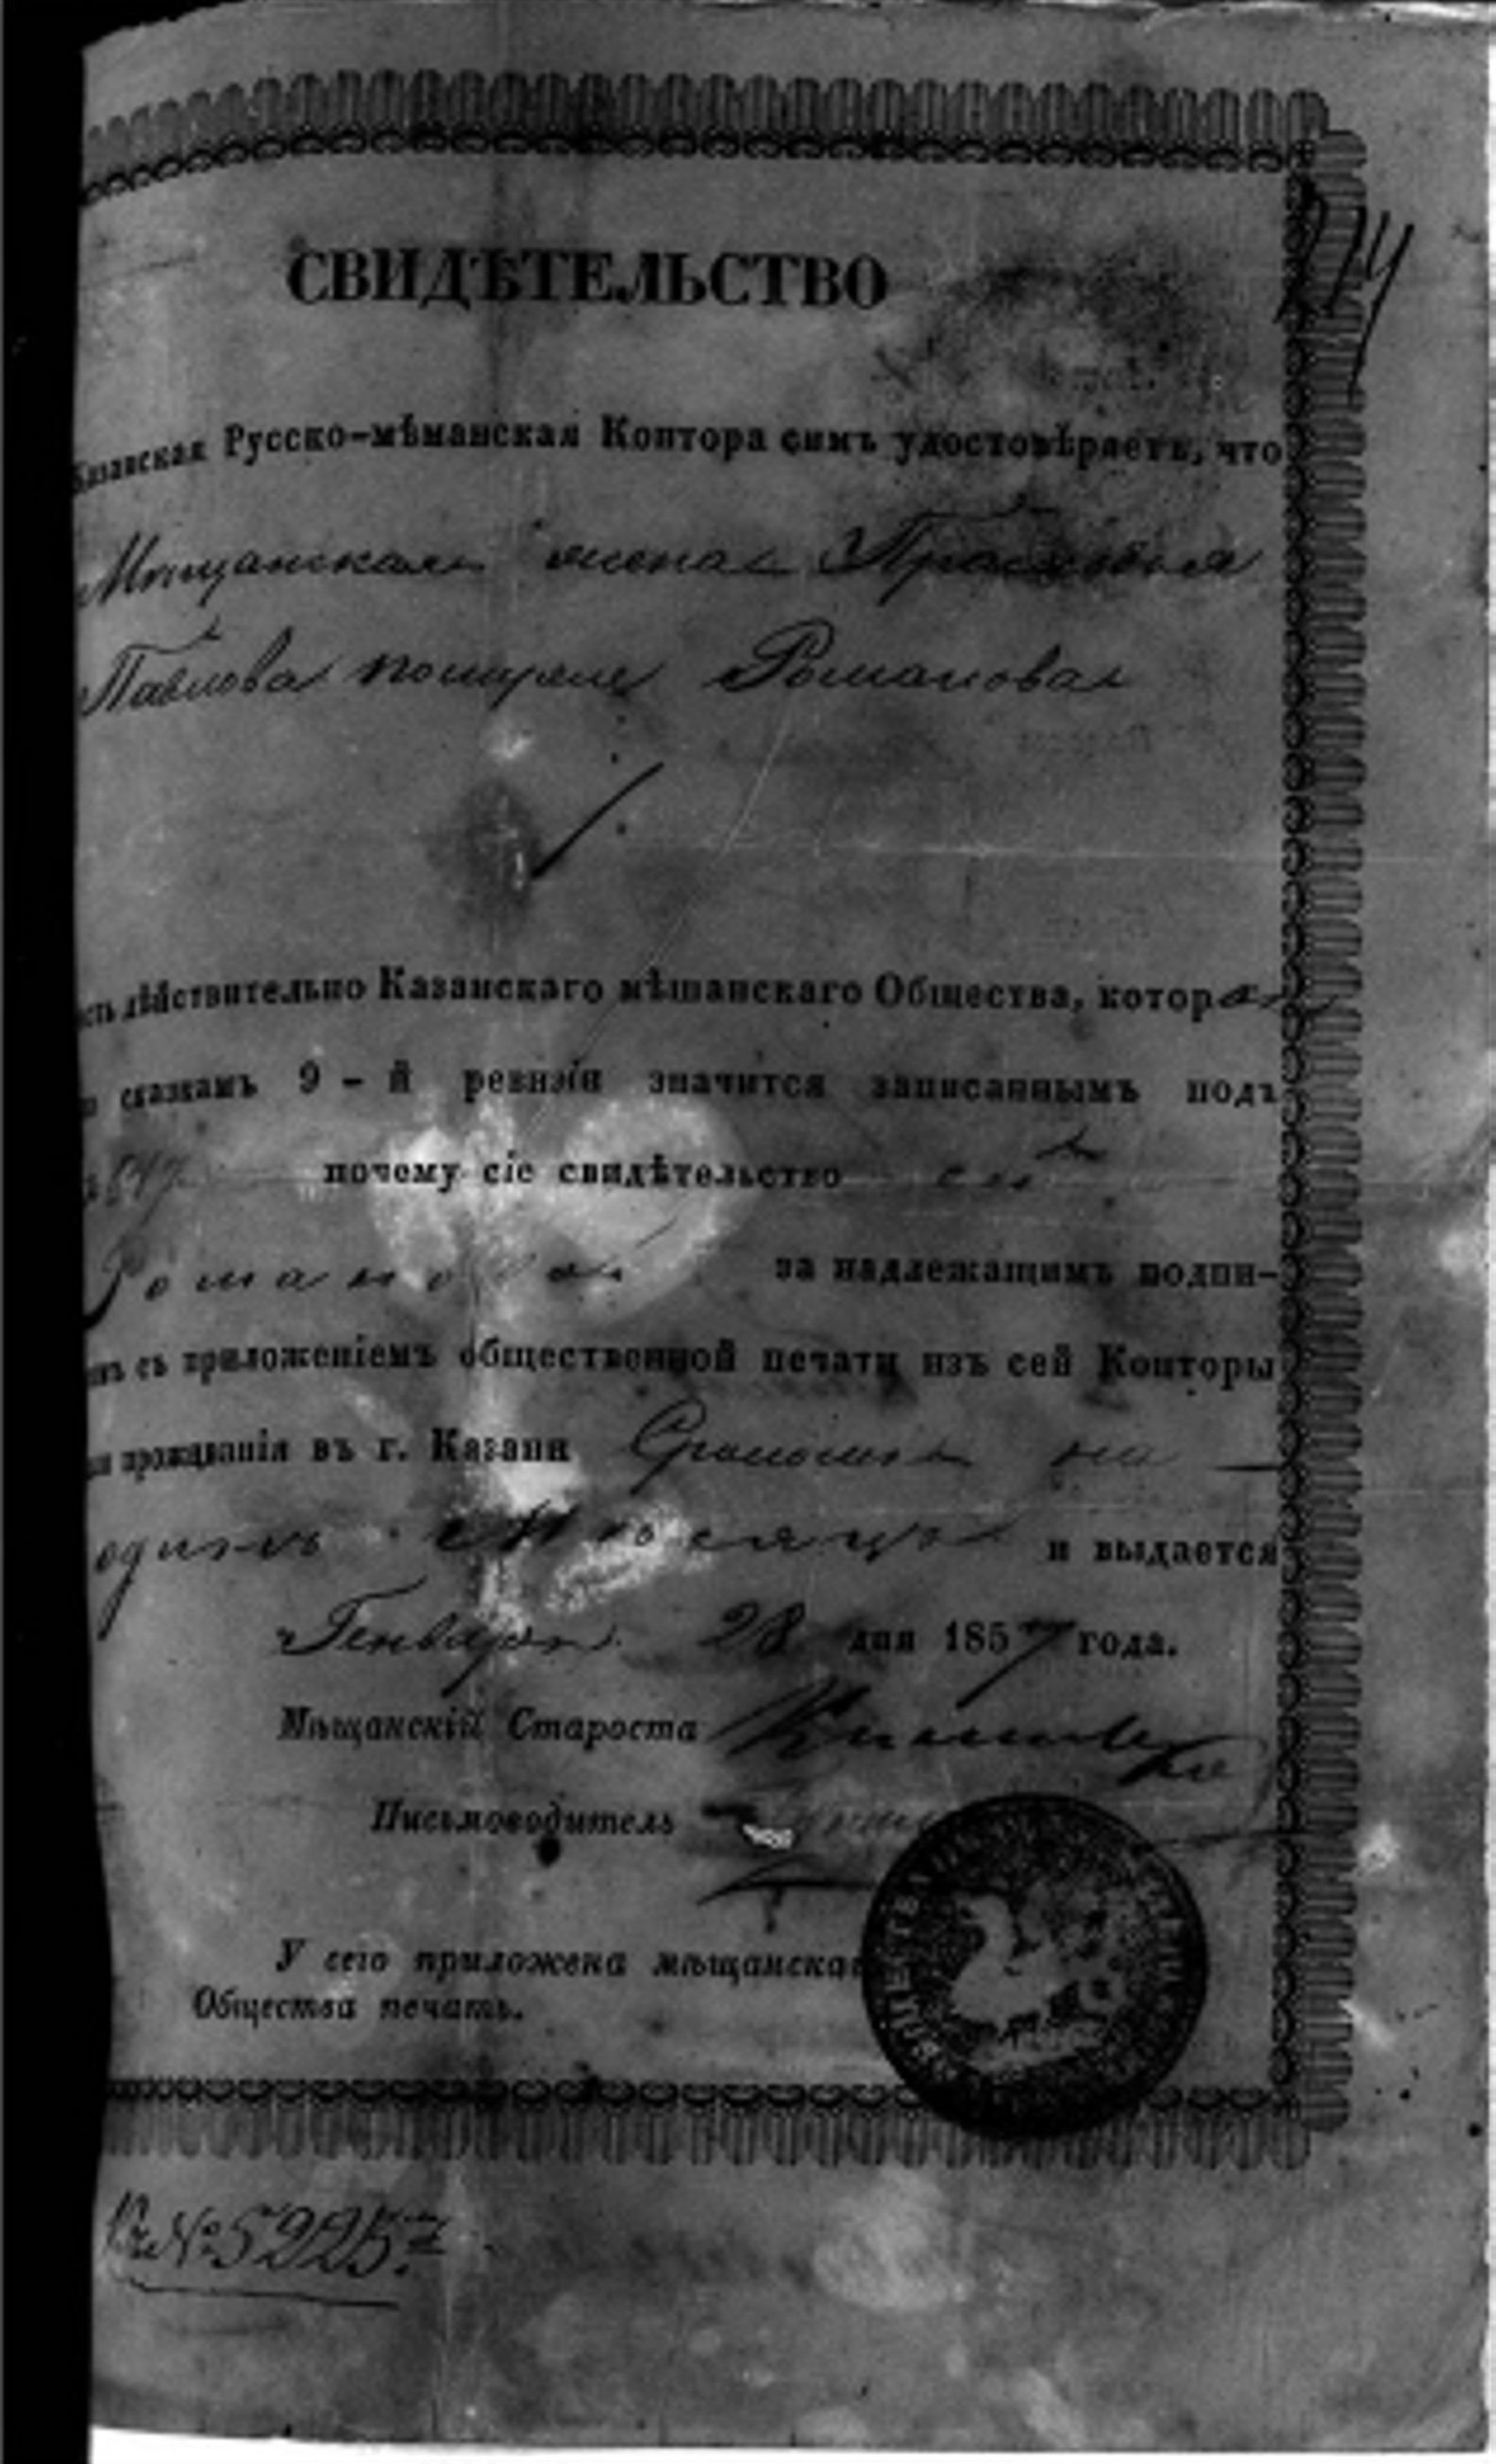 174
СВИДѢТЕЛЬСТВО
Казанская Русско-мѣщанская Контора симъ удостовѣряетъ, что
Мѣщанская жена Прасковья
Павлова помуже Романова
есть дѣйствительно Казанскаго мѣщанскаго Общества, которая
по сказкамъ 9 - й ревизіи значится записаннымъ подъ
почему сіе свидѣтельство ей
Романовой за надлежащимъ подпи-
съ приложеніемъ общественной печати изъ сей Конторы
проживанія въ г. Казани Срокомъ на
одинъ Мѣсяцъ и выдается
Генваря 28 дня 1857 года.
Мѣщанскій Староста
Письмоводитель
У сего приложена мѣщанскаго
Общества печать.
№ 5225